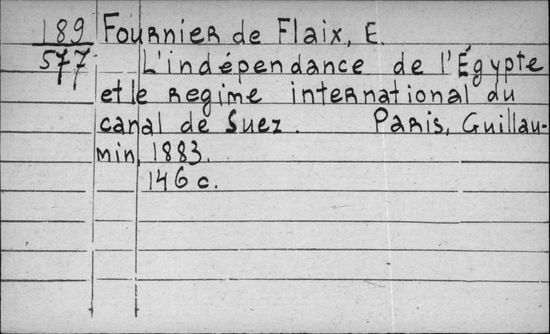 189 Fournier de Flaix, E.
577 L'indépendance de l'Égypte
et le regime international du
canal de Suez. Paris, Guillau-
min, 1883.
146 c.